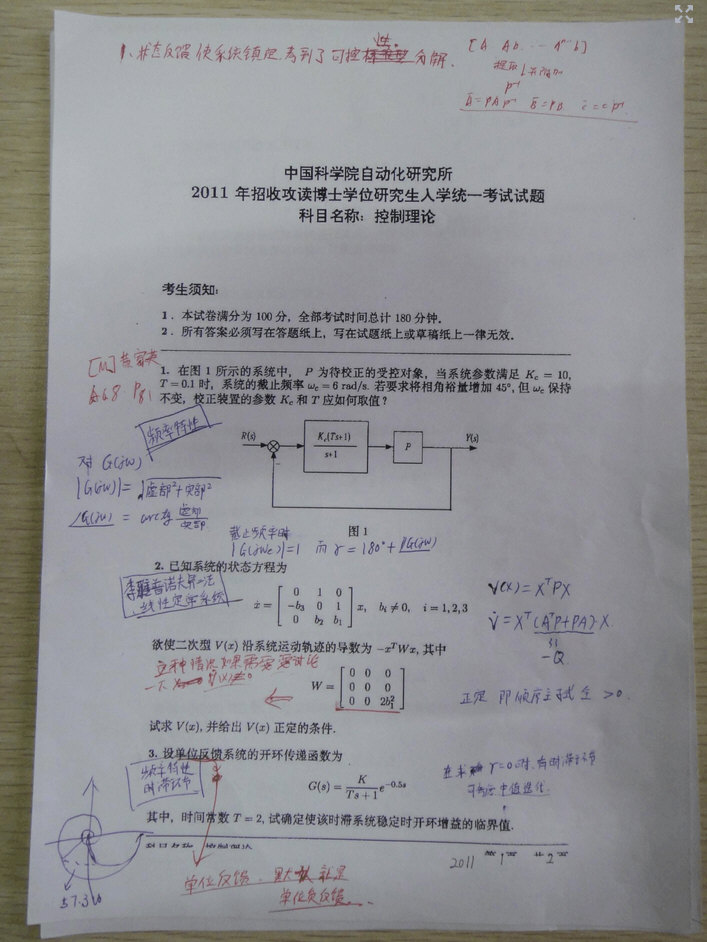 1、状态反馈使系统镇定,考到了可控性分解.
[b Ab ... Aⁿ⁻¹b]
P⁻¹
Ā=PAP⁻¹ B̄=PB c̄=cP⁻¹
中国科学院自动化研究所
2011 年招收攻读博士学位研究生入学统一考试试题
科目名称：控制理论
考生须知:
1．本试卷满分为 100 分，全部考试时间总计 180 分钟．
2．所有答案必须写在答题纸上，写在试题纸上或草稿纸上一律无效．
1. 在图 1 所示的系统中， P 为待校正的受控对象，当系统参数满足 Kc = 10,
T = 0.1 时，系统的截止频率 ωc = 6 rad/s. 若要求将相角裕量增加 45°, 但 ωc 保持
不变，校正装置的参数 Kc 和 T 应如何取值？
频率特性
R(s)
Kc(Ts+1)
s+1
P
Y(s)
−
对 G(jω)
|G(jω)|= √虚部²+实部²
∠G(jω) = arc 虚部/实部
图 1
截止频率时
|G(jωc)|=1 而 γ = 180°+∠G(jω)
2. 已知系统的状态方程为
李雅普诺夫第一法
线性定常系统
ẋ = [ 0 1 0
−b3 0 1
0 b2 b1 ] x, bi ≠ 0, i = 1, 2, 3
V(x) = XᵀPX
V̇ = Xᵀ(AᵀP+PA)X
−Q
欲使二次型 V(x) 沿系统运动轨迹的导数为 −xᵀWx, 其中
这种情况如果需要
W = [ 0 0 0
0 0 0
0 0 2b1² ]
正定 即顺序主子式全 >0.
试求 V(x), 并给出 V(x) 正定的条件.
3. 设单位反馈系统的开环传递函数为
频率特性
时滞环节
G(s) = K/(Ts+1) e^−0.5s
其中，时间常数 T = 2, 试确定使该时滞系统稳定时开环增益的临界值.
2011 第 1 页 共 2 页
单位反馈、默认就是
单位负反馈.
57.3